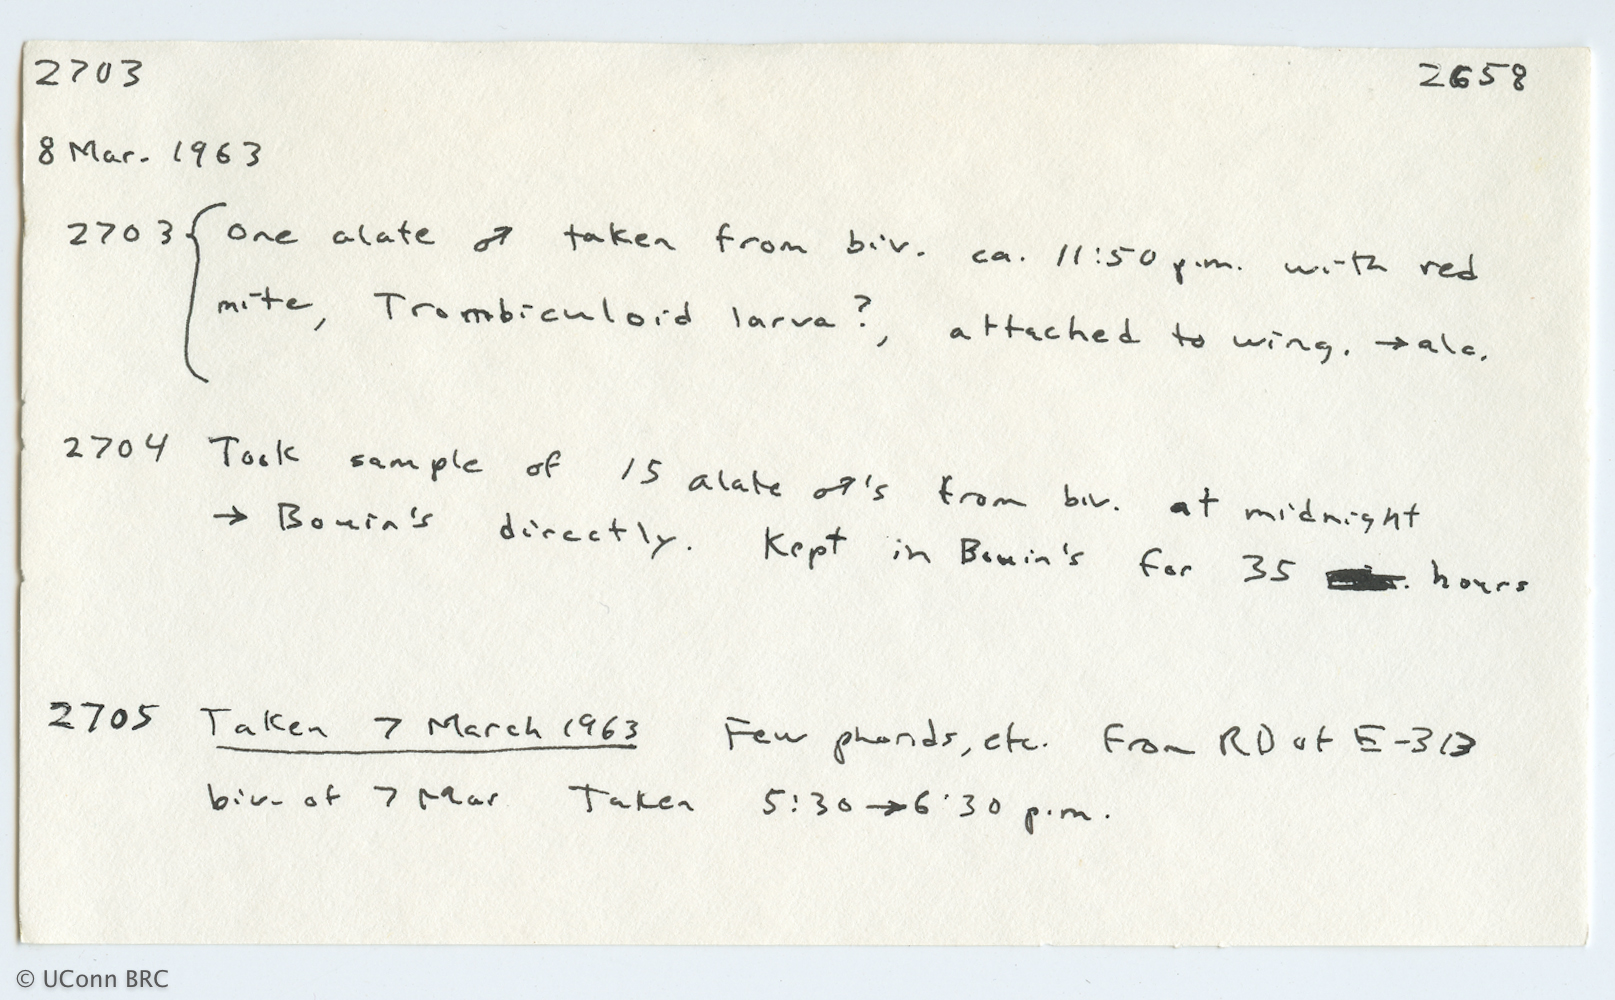 2703 2658
8 Mar. 1963
2703 { One alate ♂ taken from biv. ca. 11:50 p.m. with red
mite, Trombiculoid larva?, attached to wing. → alc.
2704 Took sample of 15 alate ♂'s from biv. at midnight
→ Bouin's directly. Kept in Bouin's for 35 hours
2705 Taken 7 March 1963 Few phorids, etc. from RD of E-313
biv. of 7 Mar Taken 5:30 → 6:30 p.m.
© UConn BRC